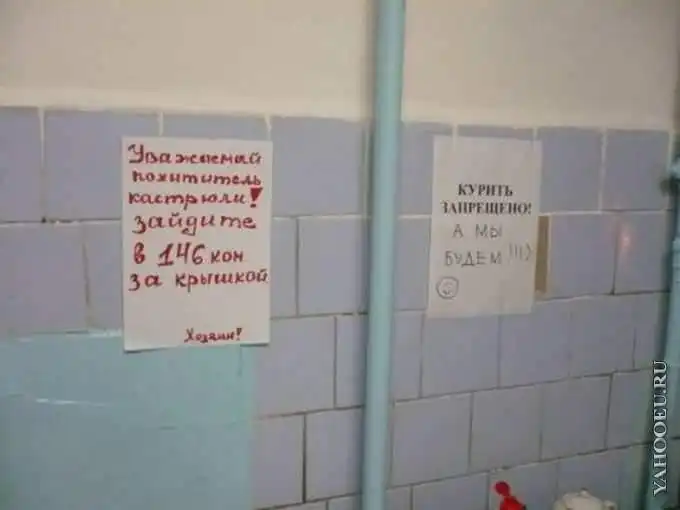 Уважаемай
похититель
кастрюли!
зайдите
в 146 кон
за крышкой
Хозяин!
КУРИТЬ
ЗАПРЕЩЕНО!
А МЫ
БУДЕМ !!!)
YAHOOEU.RU